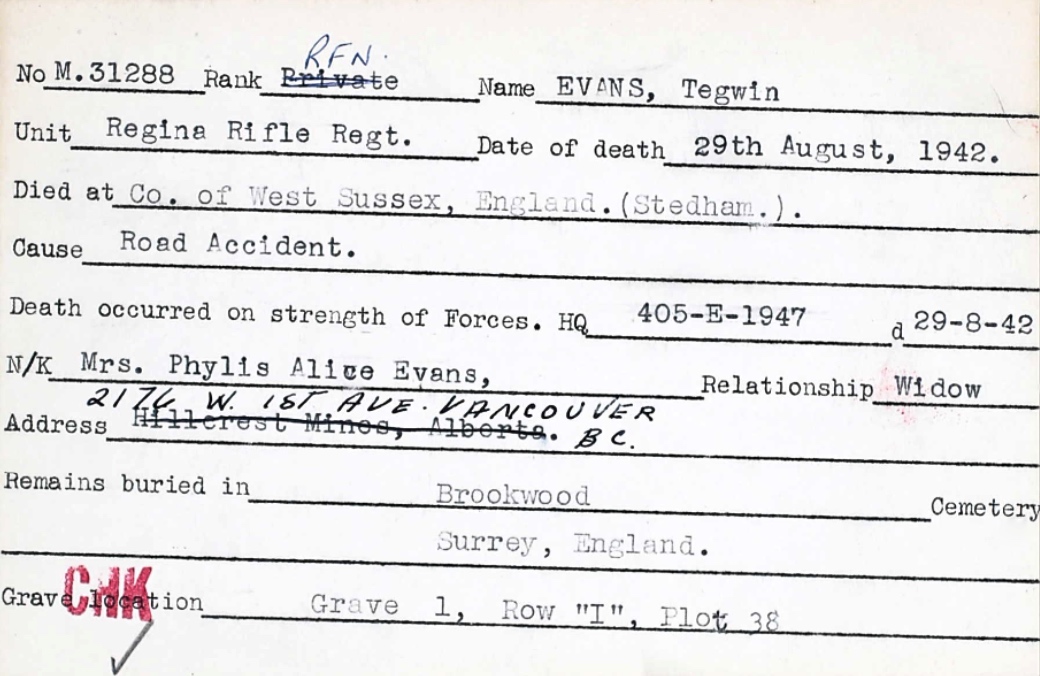 RFN.
No M.31288 Rank Private Name EVANS, Tegwin
Unit Regina Rifle Regt. Date of death 29th August, 1942.
Died at Co. of West Sussex, England.(Stedham.).
Cause Road Accident.
Death occurred on strength of Forces. HQ 405-E-1947 d 29-8-42
N/K Mrs. Phylis Alice Evans, Relationship Widow
2176 W. 1ST AVE. VANCOUVER
Address Hillcrest Mines, Alberta. B C.
Remains buried in Brookwood Cemetery
Surrey, England.
CHK
Grave location Grave 1, Row "I", Plot 38